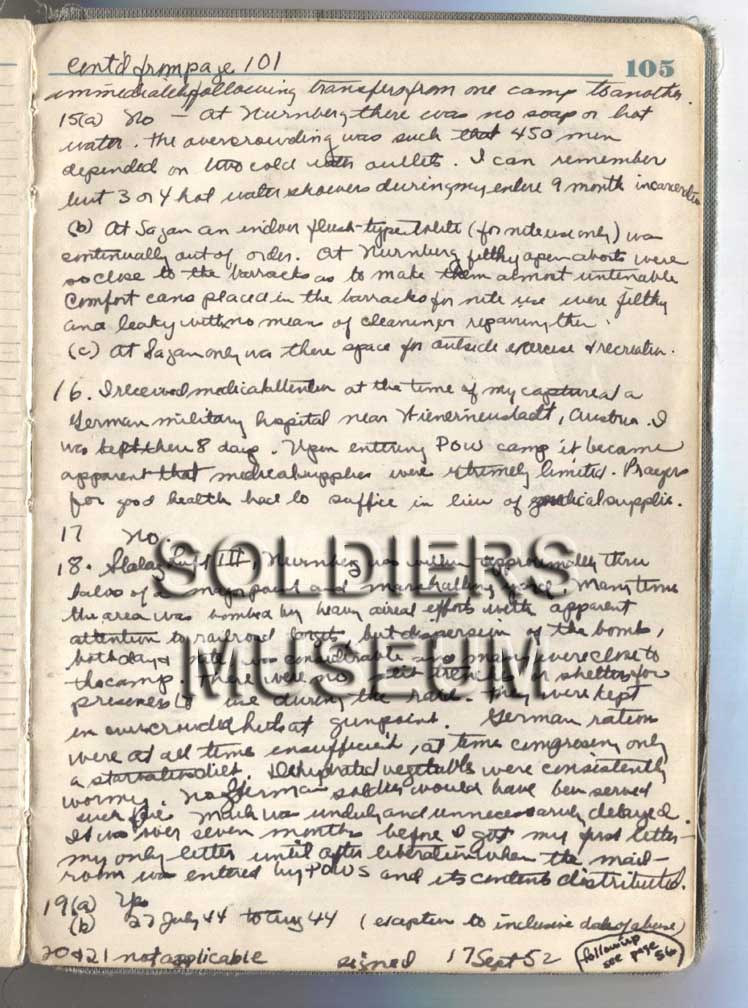 105
cont'd from page 101
immediately following transfers from one camp to another.
15(a) No — At Nurnberg there was no soap or hot
water. The overcrowding was such that 450 men
depended on two cold water outlets. I can remember
but 3 or 4 hot water showers during my entire 9 month incarceration
(b) At Sagan an indoor flush-type toilet (for nite use only) was
continually out of order. At Nurnberg filthy open aborts were
so close to the barracks as to make them almost untenable
Comfort cans placed in the barracks for nite use were filthy
and leaky with no means of cleaning or repairing them.
(c) At Sagan only was there space for outside exercise & recreation.
16. I received medical attention at the time of my capture at a
German military hospital near Wienerneustadt, Austria. I
was kept there 8 days. Upon entering POW camp it became
apparent that medical supplies were extremely limited. Prayers
for good health had to suffice in lieu of medical supplies.
17 No.
18. Stalag Luft III, Nurnberg was within approximately three
of a major and marshalling yard. Many times
the area was bombed by heavy aireal efforts with apparent
attention to railroad targets, but dispersion of the bombs,
both day & nite, was considerable and many were close to
the camp. There were no slit trenches or shelters for
prisoners to use during the raids. They were kept
in overcrowded huts at gunpoint. German rations
were at all times insufficient, at times comprising only
a starvation diet. Dehydrated vegetables were consistently
wormy. No German soldier would have been served
such fare. Mail was unduly and unnecessarily delayed.
It was over seven months before I got my first letter –
my only letter until after liberation when the mail –
room was entered by POWS and its contents distributed.
19(a) Yes
(b) 27 July 44 to Aug 44 (exception to inclusive dates of abuse)
20 & 21 not applicable signed 17 Sept 52
follow up
see page
56
SOLDIERS
MUSEUM